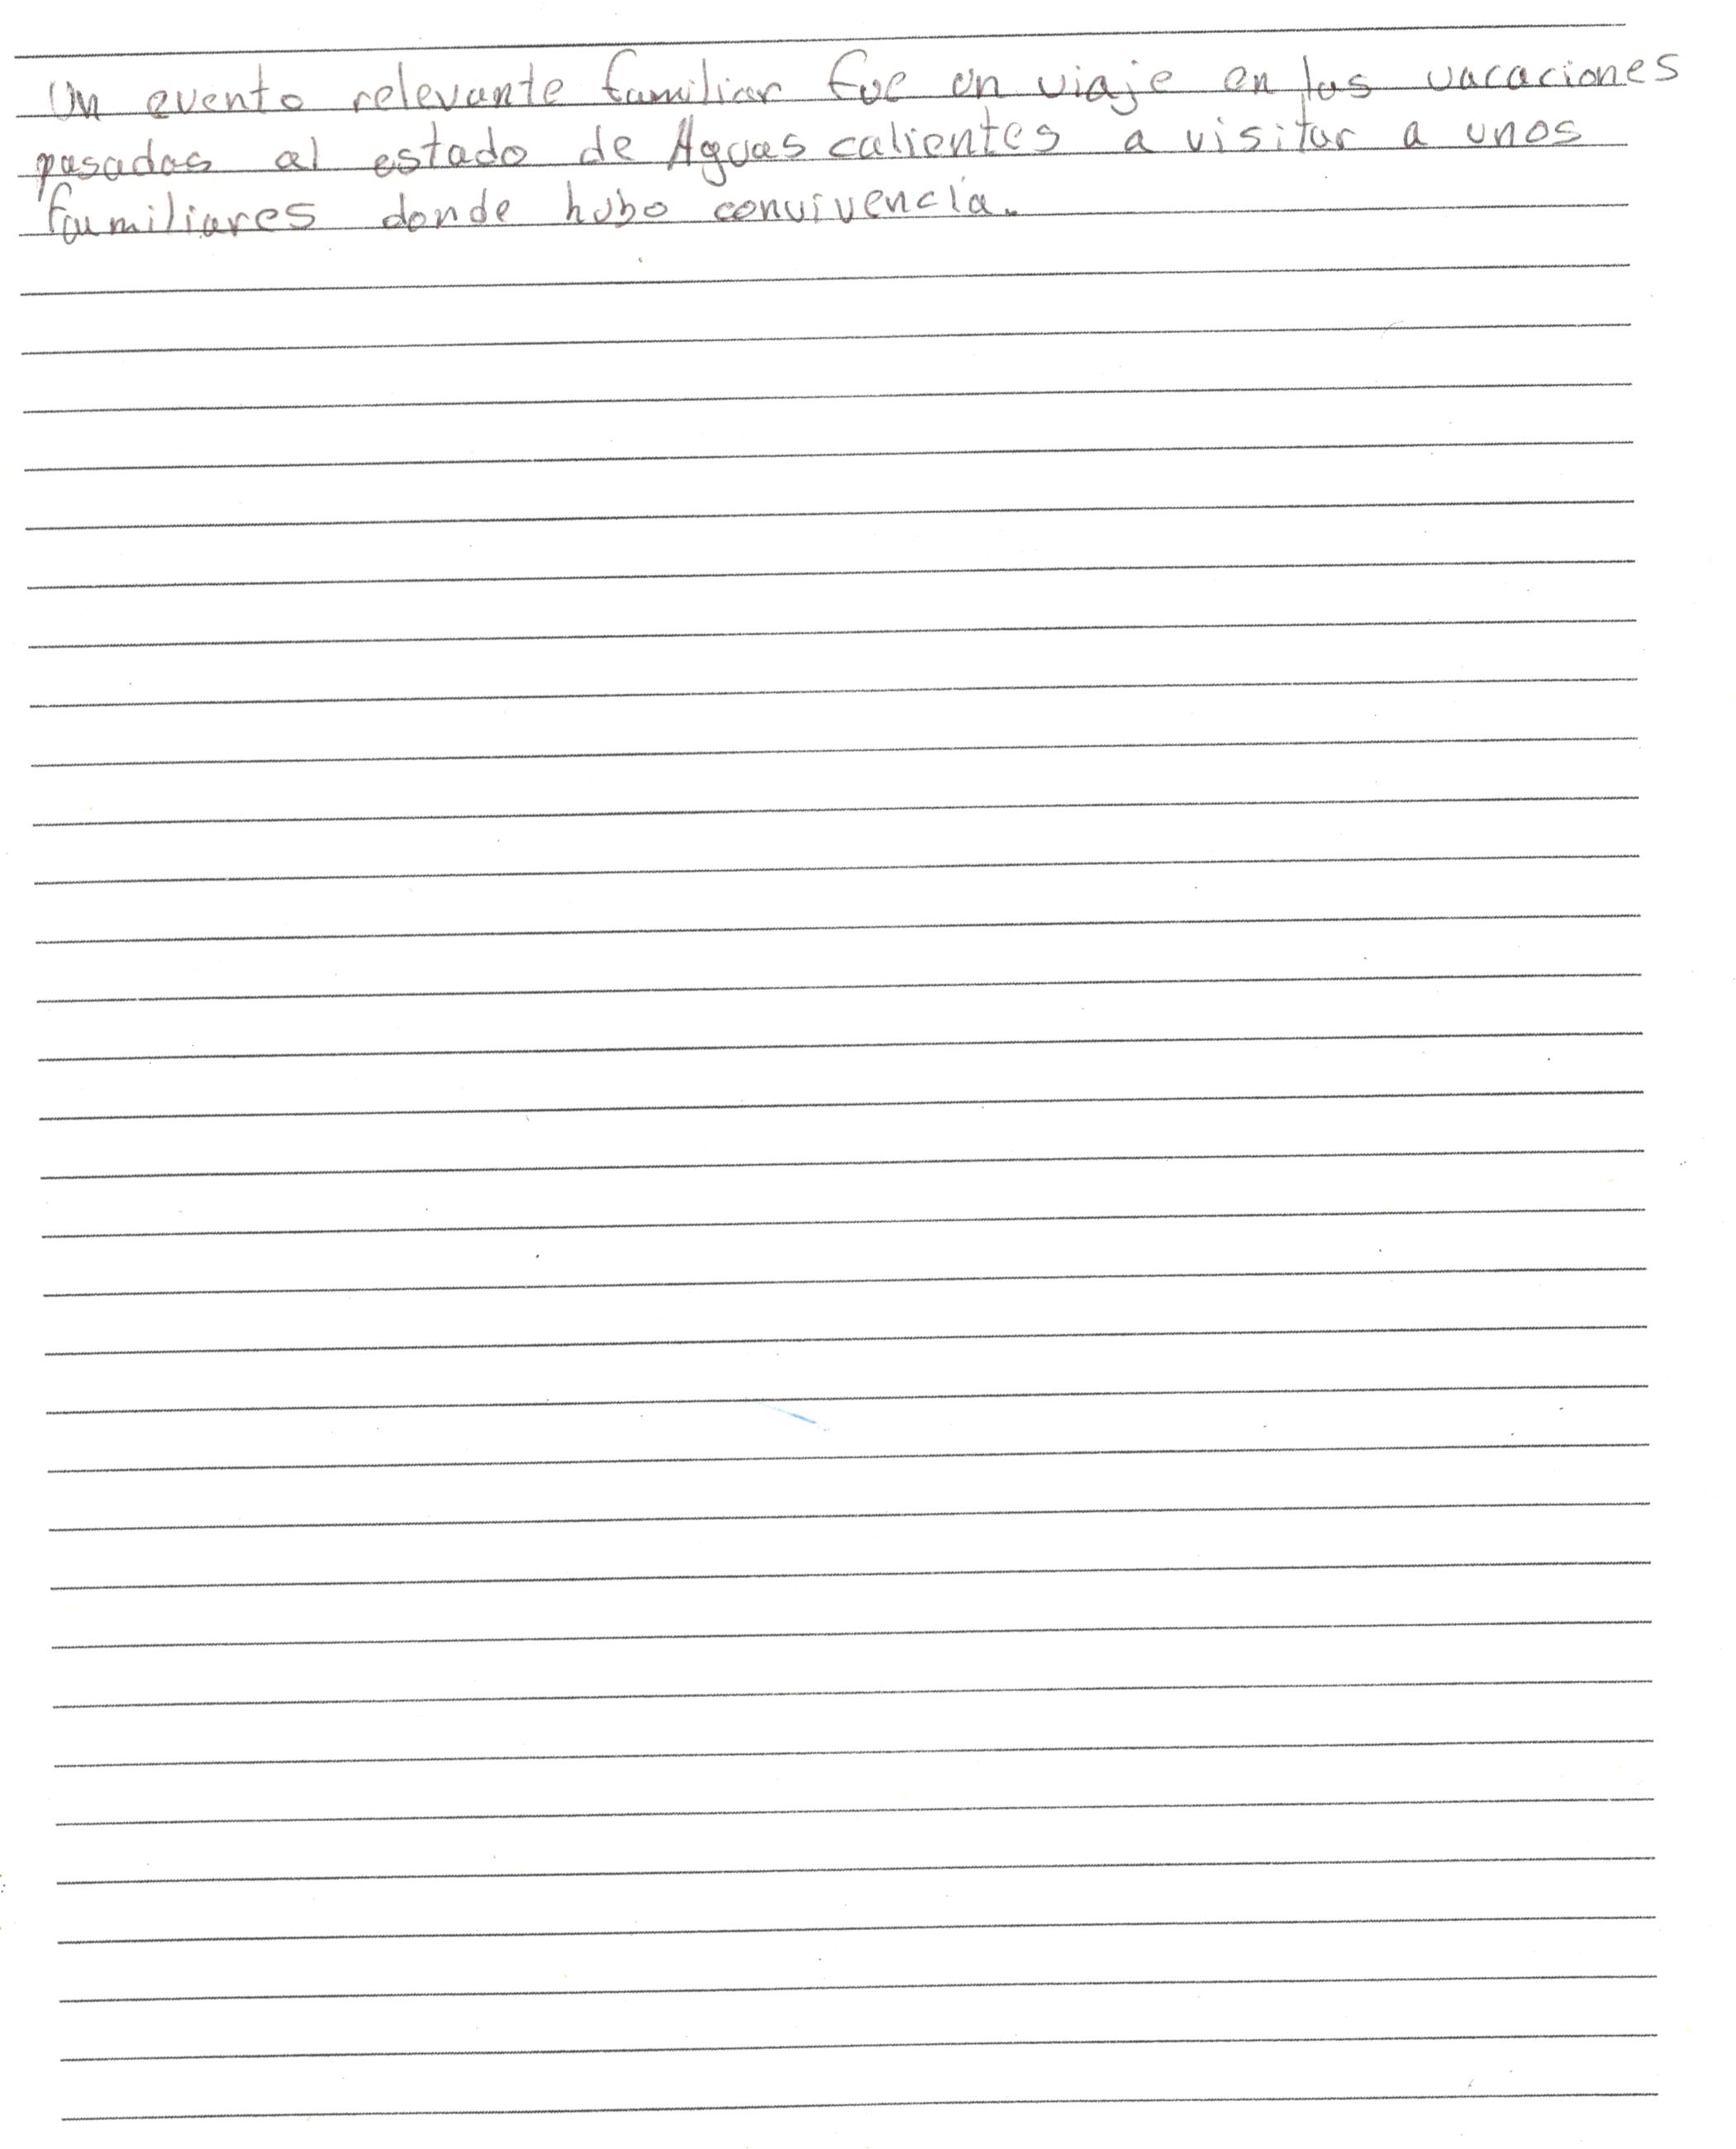 Un evento relevante familiar fue un viaje en las vacaciones
pasadas al estado de Aguas calientes a visitar a unos
familiares donde hubo convivencia.